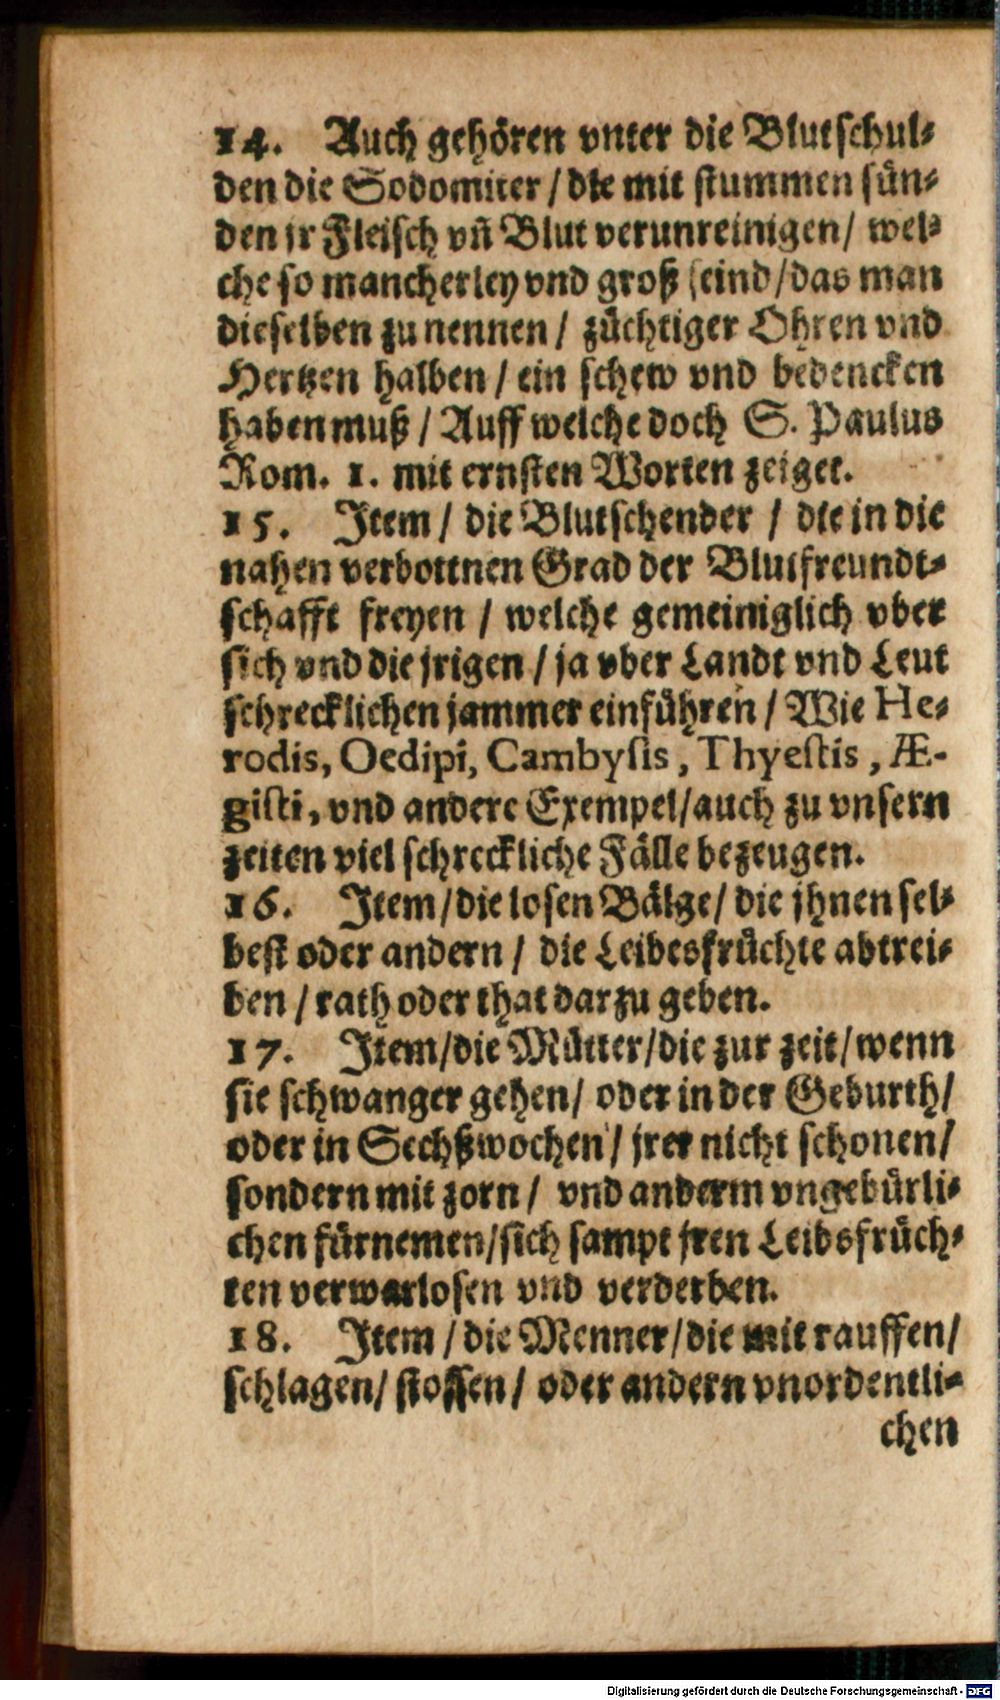 14. Auch gehören vnter die Blutschul⸗
den die Sodomiter / die mit stummen sün⸗
den jr Fleisch vñ Blut verunreinigen / wel⸗
che so mancherley vnd groß seind / das man
dieselben zu nennen / züchtiger Ohren vnd
Hertzen halben / ein schew vnd bedencken
haben muß / Auff welche doch S. Paulus
Rom. 1. mit ernsten Worten zeiget.
15. Item / die Blutschender / die in die
nahen verbottnen Grad der Blutfreundt⸗
schafft freyen / welche gemeiniglich vber
sich vnd die jrigen / ja vber Landt vnd Leut
schrecklichen jammer einführen / Wie He⸗
rodis, Oedipi, Cambysis, Thyestis, Æ-
gisti, vnd andere Exempel / auch zu vnsern
zeiten viel schreckliche Fälle bezeugen.
16. Item / die losen Bälge / die jhnen sel⸗
best oder andern / die Leibesfrüchte abtrei⸗
ben / rath oder that darzu geben.
17. Item / die Mütter / die zur zeit / wenn
sie schwanger gehen / oder in der Geburth /
oder in Sechßwochen / jrer nicht schonen /
sondern mit zorn / vnd anderm vngebürli⸗
chen fürnemen / sich sampt jren Leibsfrüch⸗
ten verwarlosen vnd verderben.
18. Item / die Menner / die mit rauffen /
schlagen / stossen / oder andern vnordentli⸗
chen
Digitalisierung gefördert durch die Deutsche Forschungsgemeinschaft - DFG